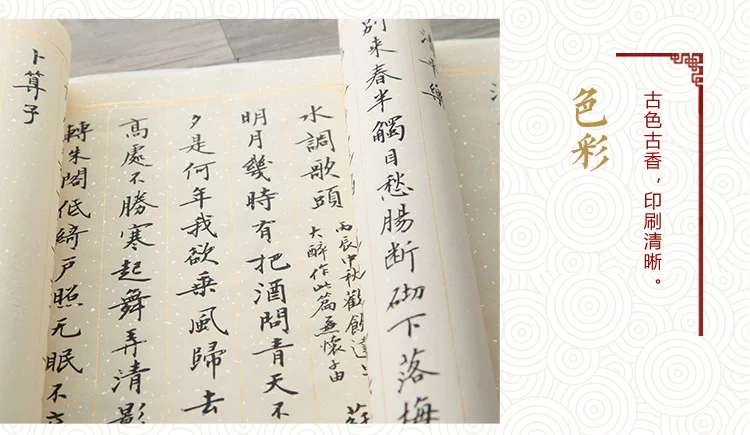 色彩
古色古香，印刷清晰。
平樂
別来春半觸目愁腸断砌下落梅
水調歌頭
丙辰中秋歡飲達
大醉作此篇兼懷子由
明月幾時有把酒問青天不
夕是何年我欲乘風歸去
高處不勝寒起舞弄清影
轉朱閣低綺戶照无眠不
卜算子